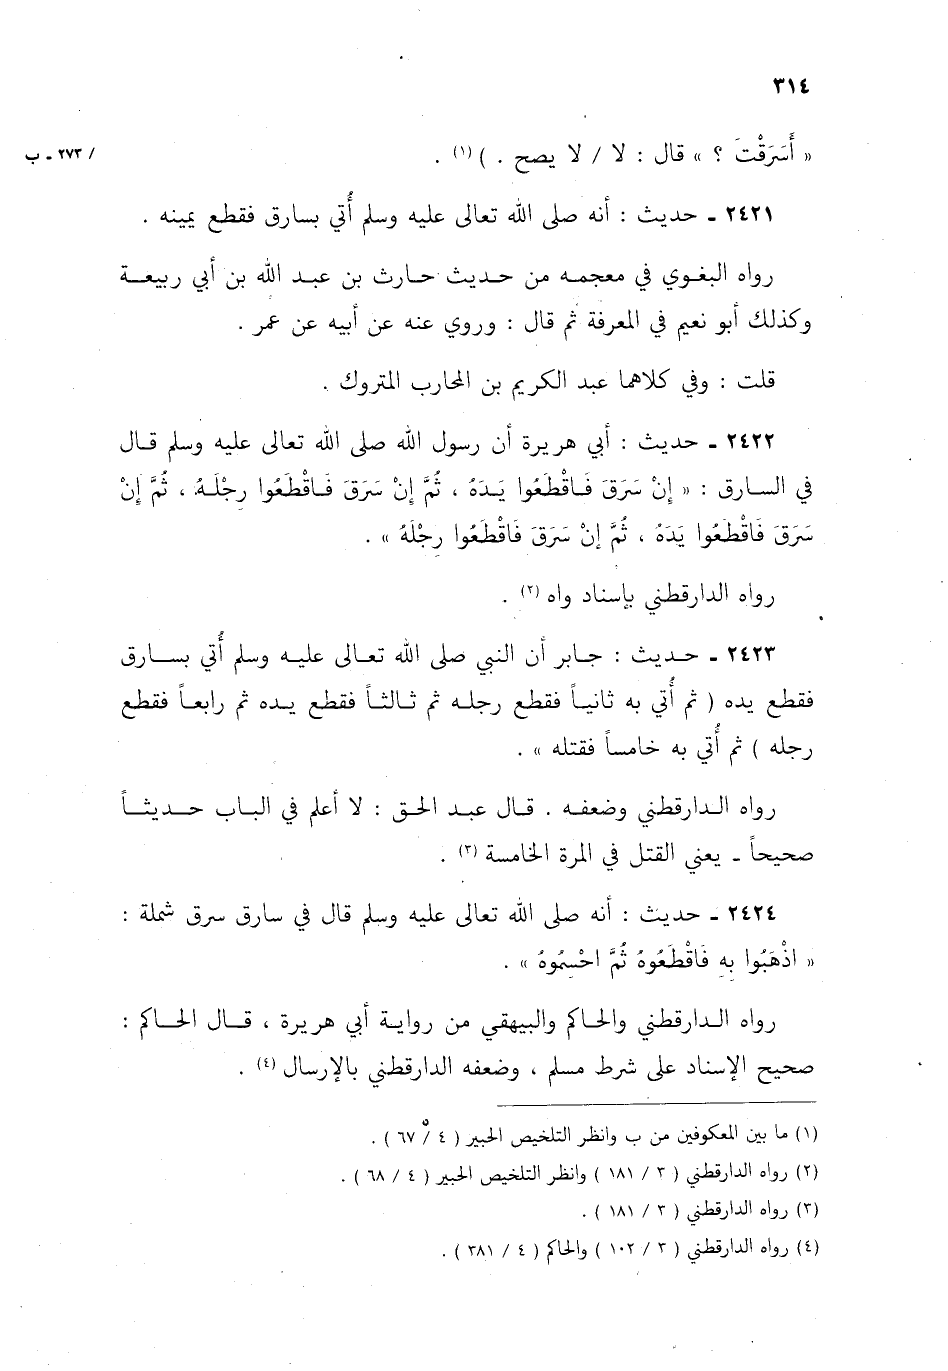 ٣١٤
« أَسَرَقْتَ ؟ » قال : لا / لا يصح . ) (١) .
/ ٢٧٣ ـ ب
٢٤٢١ ـ حديث : أنه صلى الله تعالى عليه وسلم أُتي بسارق فقطع يمينه .
رواه البغوي في معجمه من حديث حارث بن عبد الله بن أبي ربيعة
وكذلك أبو نعيم في المعرفة ثم قال : وروي عنه عن أبيه عن عمر .
قلت : وفي كلاهما عبد الكريم بن المخارب المتروك .
٢٤٢٢ ـ حديث : أبي هريرة أن رسول الله صلى الله تعالى عليه وسلم قال
في السارق : « إِنْ سَرَقَ فَاقْطَعُوا يَدَهُ ، ثُمَّ إِنْ سَرَقَ فَاقْطَعُوا رِجْلَهُ ، ثُمَّ إِنْ
سَرَقَ فَاقْطَعُوا يَدَهُ ، ثُمَّ إِنْ سَرَقَ فَاقْطَعُوا رِجْلَهُ » .
رواه الدارقطني بإسناد واه (٢) .
٢٤٢٣ ـ حديث : جابر أن النبي صلى الله تعالى عليه وسلم أُتي بسارق
فقطع يده ( ثم أُتي به ثانياً فقطع رجله ثم ثالثاً فقطع يده ثم رابعاً فقطع
رجله ) ثم أُتي به خامساً فقتله » .
رواه الدارقطني وضعفه . قال عبد الحق : لا أعلم في الباب حديثاً
صحيحاً ـ يعني القتل في المرة الخامسة (٣) .
٢٤٢٤ ـ حديث : أنه صلى الله تعالى عليه وسلم قال في سارق سرق شملة :
« اذْهَبُوا بِهِ فَاقْطَعُوهُ ثُمَّ احْسِمُوهُ » .
رواه الدارقطني والحاكم والبيهقي من رواية أبي هريرة ، قال الحاكم :
صحيح الإسناد على شرط مسلم ، وضعفه الدارقطني بالإرسال (٤) .
(١) ما بين المعكوفين من ب وانظر التلخيص الحبير ( ٤ / ٦٧ ) .
(٢) رواه الدارقطني ( ٣ / ١٨١ ) وانظر التلخيص الحبير ( ٤ / ٦٨ ) .
(٣) رواه الدارقطني ( ٣ / ١٨١ ) .
(٤) رواه الدارقطني ( ٣ / ١٠٢ ) والحاكم ( ٤ / ٣٨١ ) .